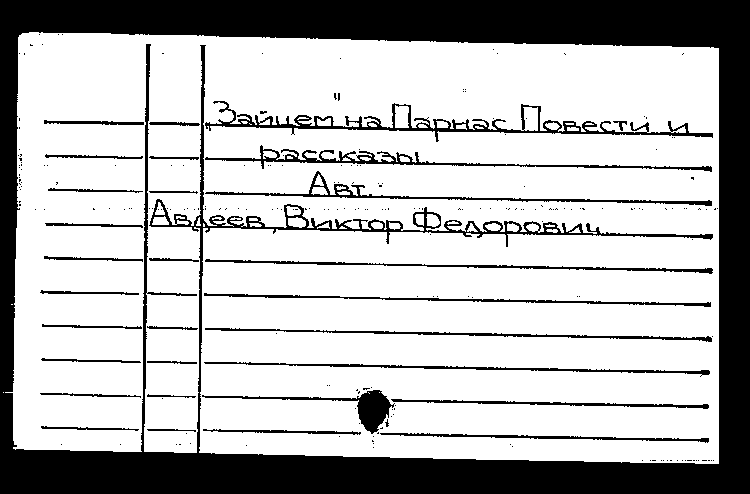 „Зайцем" на Парнас Повести и
рассказы.
Авт.:
Авдеев, Виктор Федорович